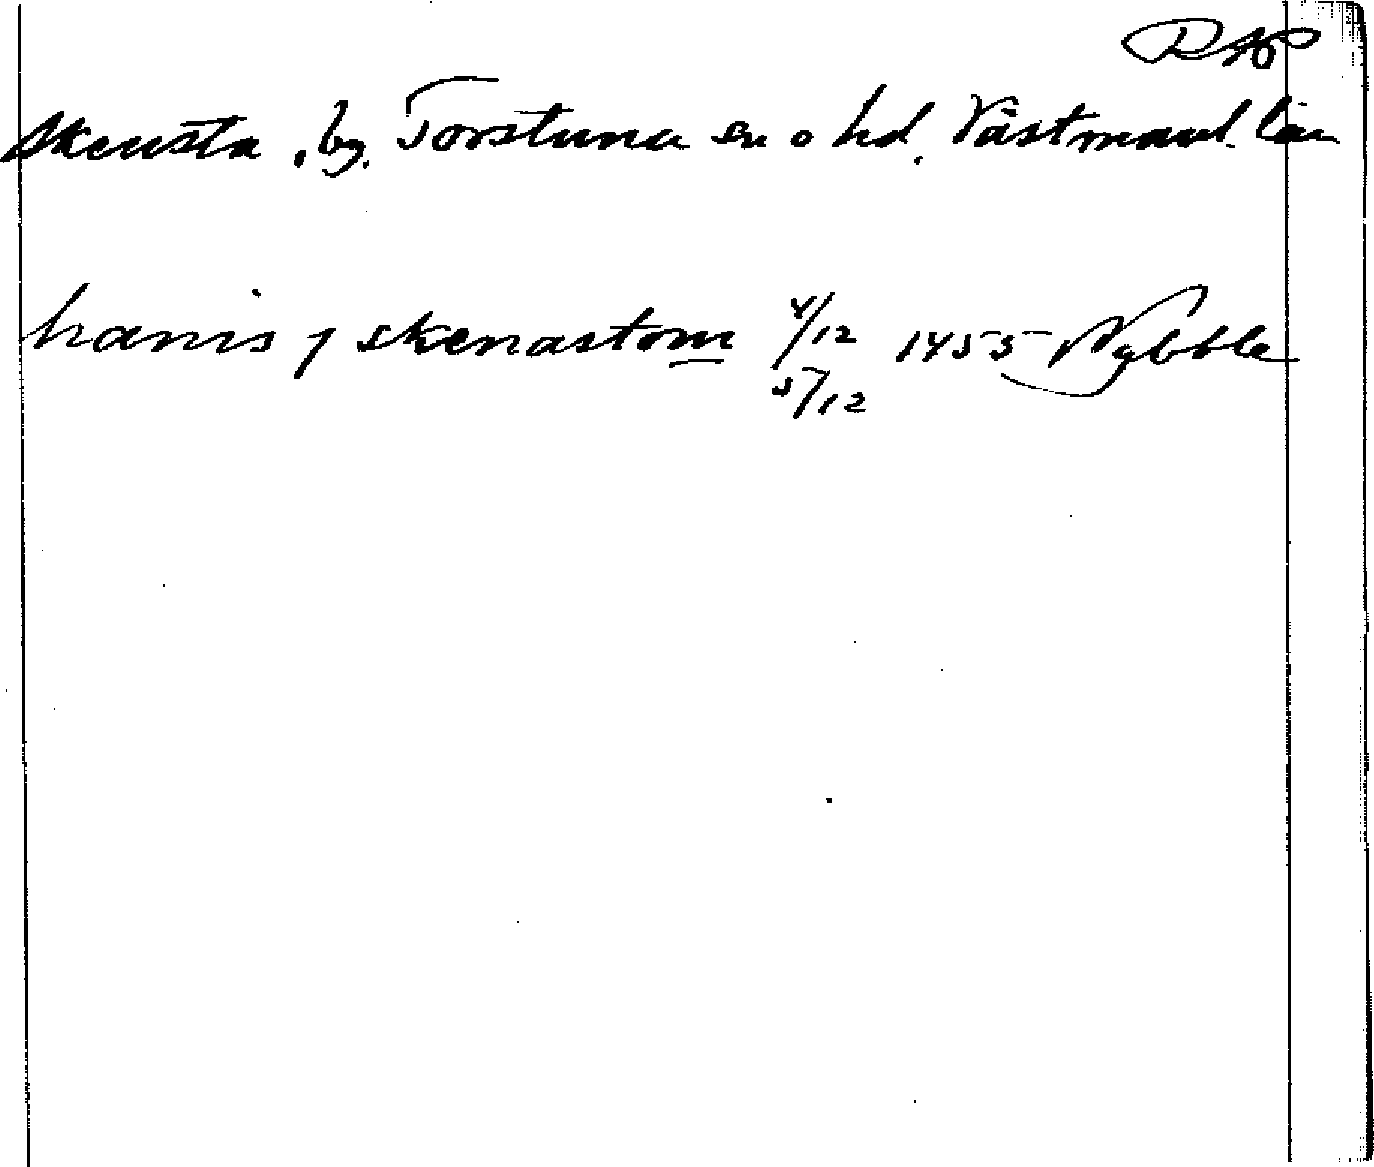 Skensta, by, Torstuna sn o hd, Västmanl. län
hanis j skenastom 4/12 1455 Nybble
5/12